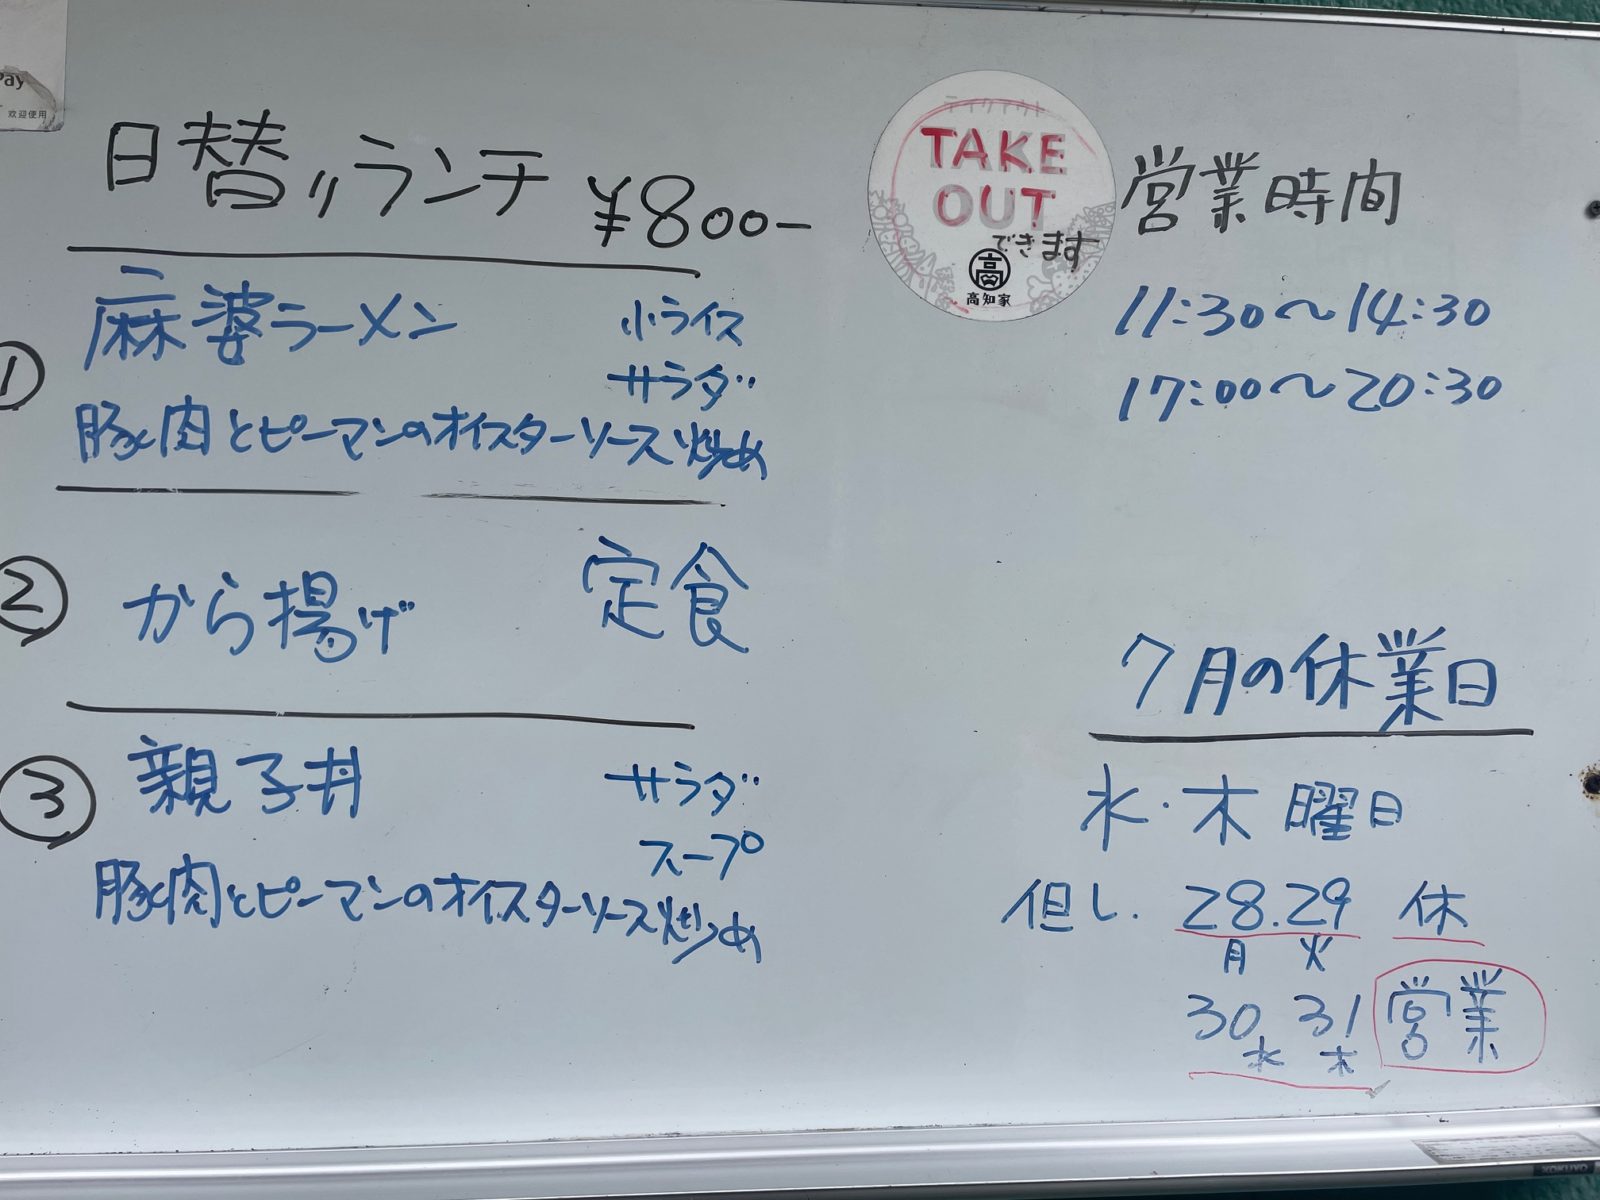 Pay
欢迎使用
日替りランチ ¥800-
① 麻婆ラーメン 小ライス
サラダ
豚肉とピーマンのオイスターソース炒め
② から揚げ 定食
③ 親子丼 サラダ
スープ
豚肉とピーマンのオイスターソース炒め
テイクアウト
TAKE
OUT
できます
高
高知家
営業時間
11:30〜14:30
17:00〜20:30
7月の休業日
水・木曜日
但し. 28.29 休
月 火
30 31 営業
水 木
KOKUYO